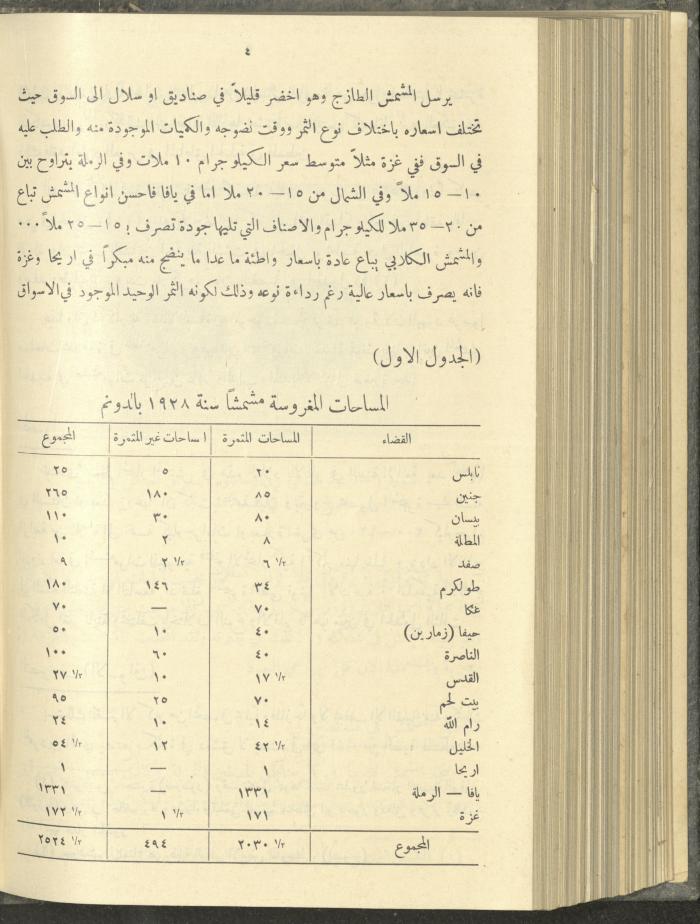 ٤
يرسل المشمش الطازج وهو اخضر قليلاً في صناديق او سلال الى السوق حيث
تختلف اسعاره باختلاف نوع الثمر ووقت نضوجه والكميات الموجودة منه والطلب عليه
في السوق ففي غزة مثلاً متوسط سعر الكيلو جرام ١٠ ملات وفي الرملة يتراوح بين
١٠—١٥ ملاً وفي الشمال من ١٥—٢٠ ملا اما في يافا فاحسن انواع المشمش تباع
من ٢٠—٣٥ ملا للكيلو جرام والاصناف التي تليها جودة تصرف ب ١٥—٢٥ ملاً ...
والمشمش الكلابي يباع عادة باسعار واطئة ما عدا ما ينضج منه مبكراً في اريحا وغزة
فانه يصرف باسعار عالية رغم رداءة نوعه وذلك لكونه الثمر الوحيد الموجود في الاسواق
(الجدول الاول)
المساحات المغروسة مشمشاً سنة ١٩٢٨ بالدونم
القضاء المساحات المثمرة ا ساحات غير المثمرة المجموع
نابلس ٢٠ ٥ ٢٥
جنين ٨٥ ١٨٠ ٢٦٥
بيسان ٨٠ ٣٠ ١١٠
المطلة ٨ ٢ ١٠
صفد ٦ ١/٢ ٢ ١/٢ ٩
طولكرم ٣٤ ١٤٦ ١٨٠
عكا ٧٠ — ٧٠
حيفا (زمارين) ٤٠ ١٠ ٥٠
الناصرة ٤٠ ٦٠ ١٠٠
القدس ١٧ ١/٢ ١٠ ٢٧ ١/٢
بيت لحم ٧٠ ٢٥ ٩٥
رام الله ١٤ ١٠ ٢٤
الخليل ٤٢ ١/٢ ١٢ ٥٤ ١/٢
اريحا ١ — ١
يافا — الرملة ١٣٣١ — ١٣٣١
غزة ١٧١ ١ ١/٢ ١٧٢ ١/٢
المجموع ٢٠٣٠ ١/٢ ٤٩٤ ٢٥٢٤ ١/٢